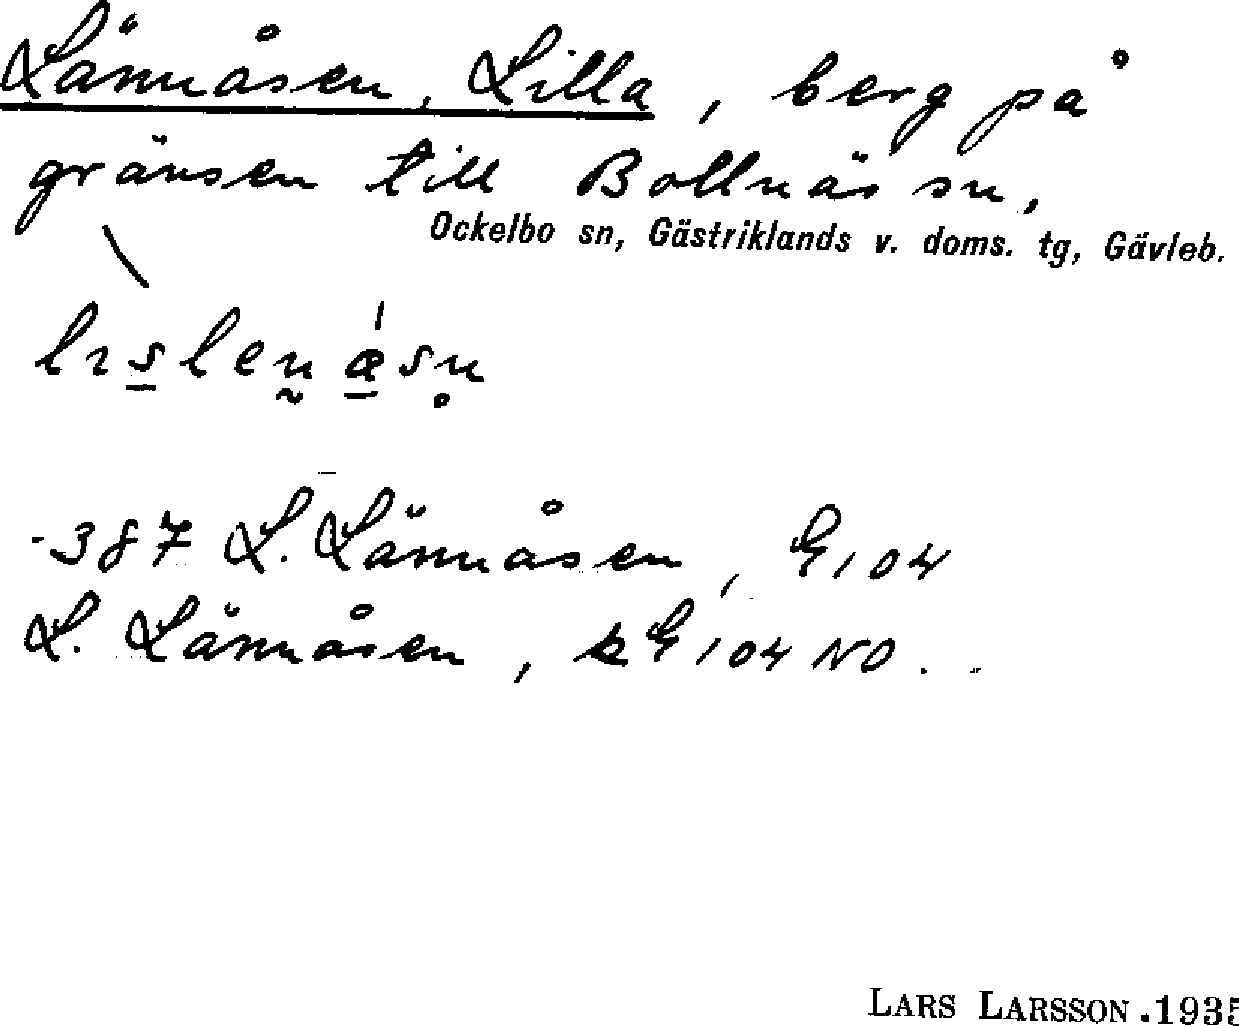 Lännåsen, Lilla, berg på
gränsen till Bollnäs sn,
Ockelbo sn, Gästriklands v. doms. tg, Gävleb.
-387 L. Lännåsen, G104
L. Lännåsen, kG104 NO.
LARS LARSSON.1935